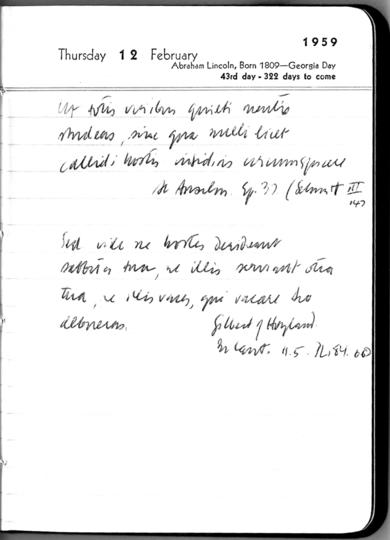 1959
Thursday 12 February
Abraham Lincoln, Born 1809—Georgia Day
43rd day - 322 days to come
Ut totis viribus quieti mentis
studeas, sine qua nulli licet
callidi hostis insidias circumspicere
St Anselm. Ep. 37 (Schmitt III
147)
Sed vide ne hostes derideant
sabbata tua, ne illis serviant otia
tua, ne illis vaces, qui vacare Deo
debueras.
Gilbert of Hoyland
In Cant. 11.5. PL. 184. 60